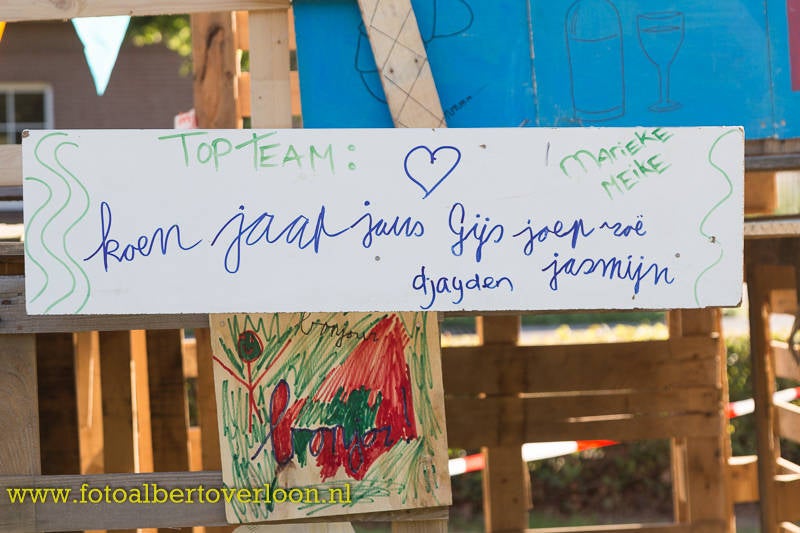 TOP TEAM:
MARIEKE
MEIKE
koen jaap jans Gijs joep zoë
djayden jasmijn
bonjour
bonjour!
www.fotoalbertoverloon.nl